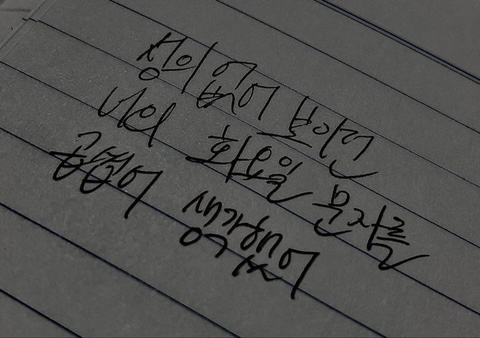 성의 없어 보이던
너의 화요일 문자를
곱씹어 생각했어